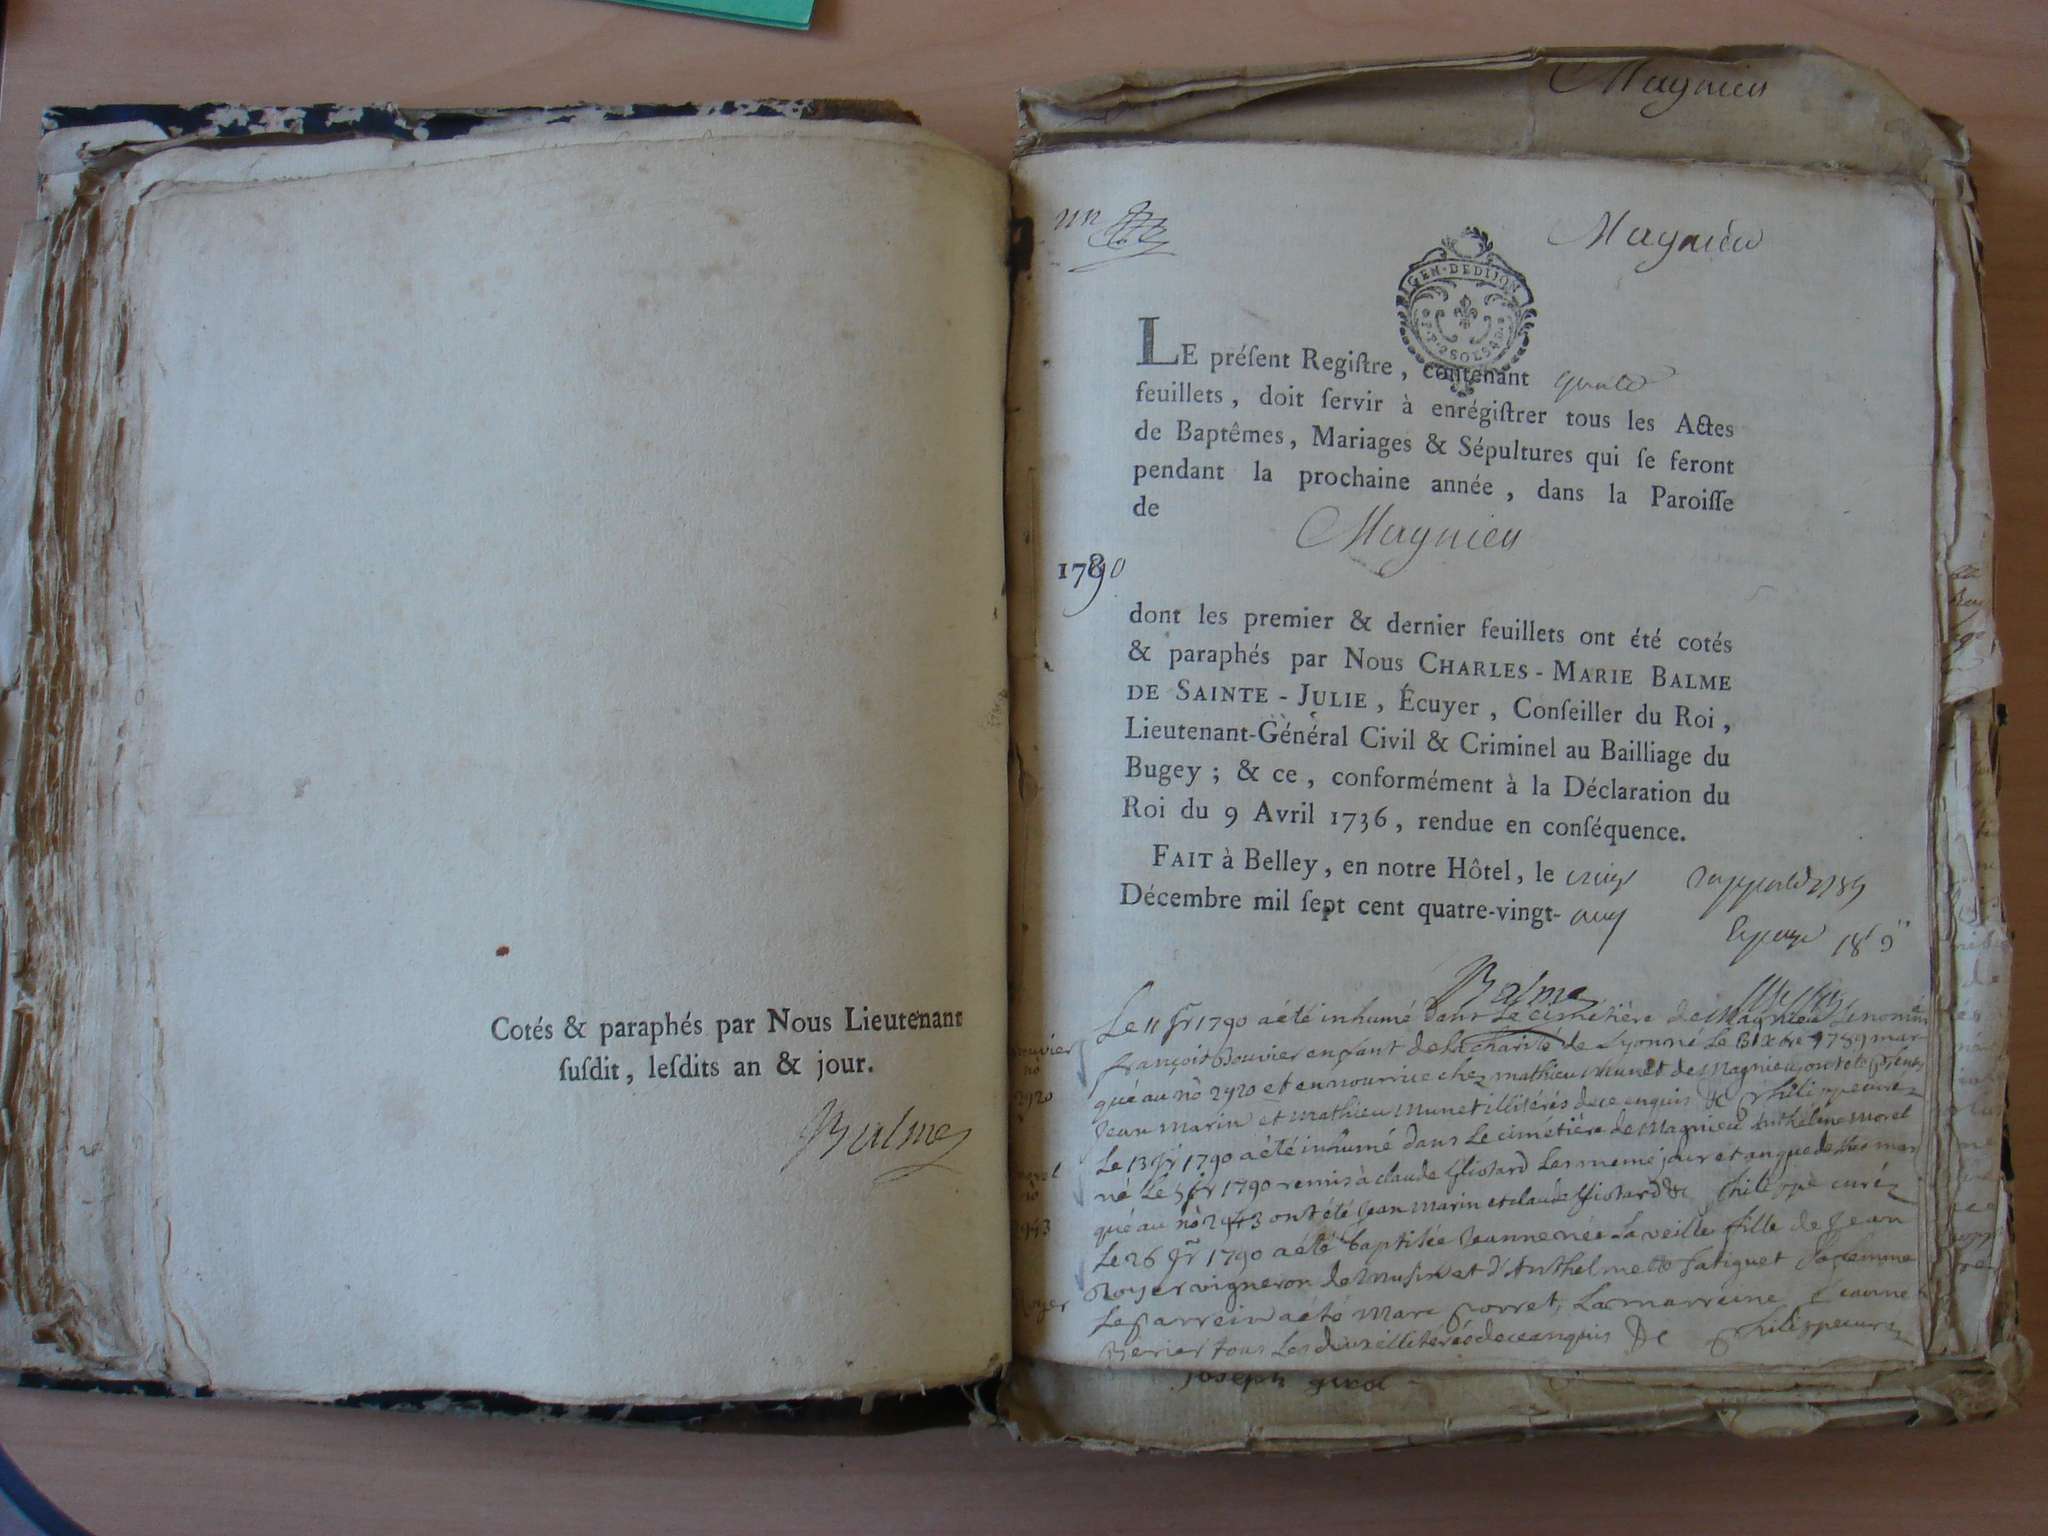 Cotés & paraphés par Nous Lieutenant
ſuſdit, leſdits an & jour.
Balme
Magnieu
un
Magnieu
GEN·DEDIJON
LE préſent Regiſtre, contenant quatre
feuillets, doit ſervir à enrégiſtrer tous les Actes
de Baptêmes, Mariages & Sépultures qui ſe feront
pendant la prochaine année, dans la Paroiſſe
de Magnieu
1790
dont les premier & dernier feuillets ont été cotés
& paraphés par Nous CHARLES-MARIE BALME
DE SAINTE-JULIE, Écuyer, Conſeiller du Roi,
Lieutenant-Général Civil & Criminel au Bailliage du
Bugey; & ce, conformément à la Déclaration du
Roi du 9 Avril 1736, rendue en conſéquence.
FAIT à Belley, en notre Hôtel, le vingt
Décembre mil ſept cent quatre-vingt-neuf
Balme
Le 11 jr 1790 a été inhumé dans Le cimetière de Magnieu Le nomé
françois Bouvier enfant de la charité de Lyon né Le 1789 mar
qué au nò 2920 et en nourrice chez mathieu munet de Magnieu ont été présents
Jean marin et mathieu munet illitérés de ce enquis &c philippe curé
Le 13 jr 1790 a été inhumé dans Le cimetière de Magnieu Anthelme morel
né Le 5 jr 1790 remis à claude Gliotard Les meme jour et an que dessus mar
qué au nò 2943 ont été Jean marin et claude Gliotard &c philippe curé
Le 26 jr 1790 a été baptisée Jeanne née La veille fille de Jean
Royer vigneron de musin et d'Anthelmette Fatiguet sa femme
Le parrein a été marc Corret, La marreine Jeanne
Perrier tous Les deux illitérés de ce enquis &c philippe curé
Bouvier
nò
2920
morel
nò
2943
Royer
Joseph